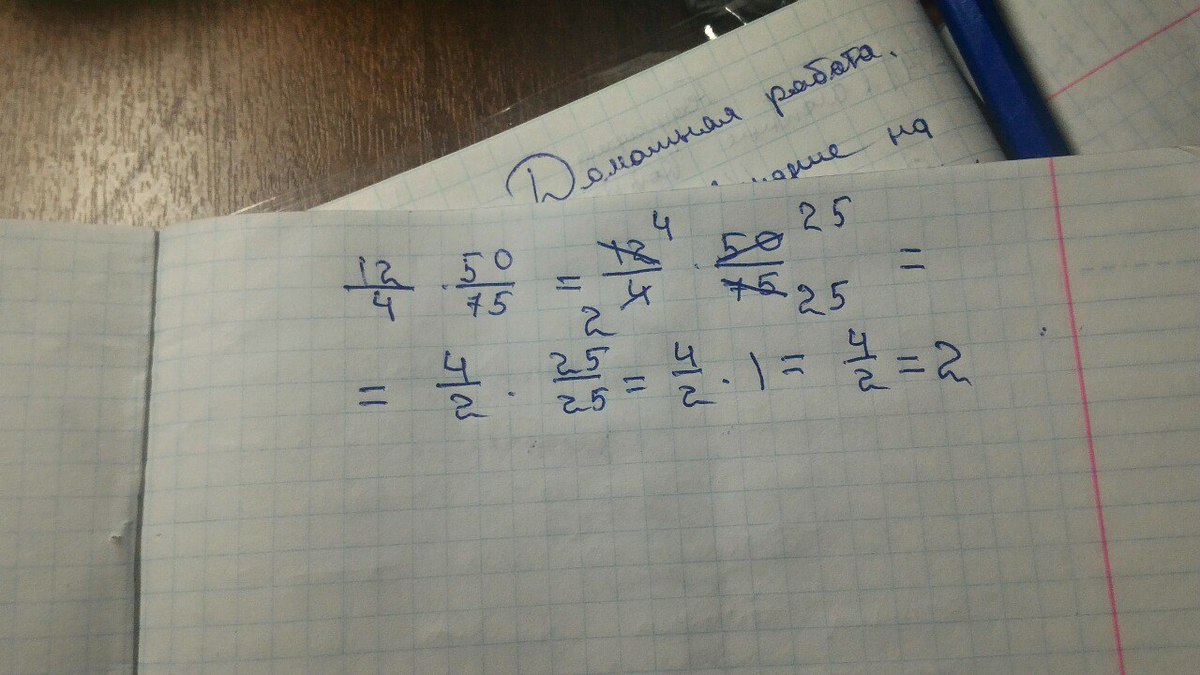 Домашная работа.
на
12/4 · 50/75 = 12/4 4 2 · 50/75 25 25 =
= 4/2 · 25/25 = 4/2 · 1 = 4/2 = 2